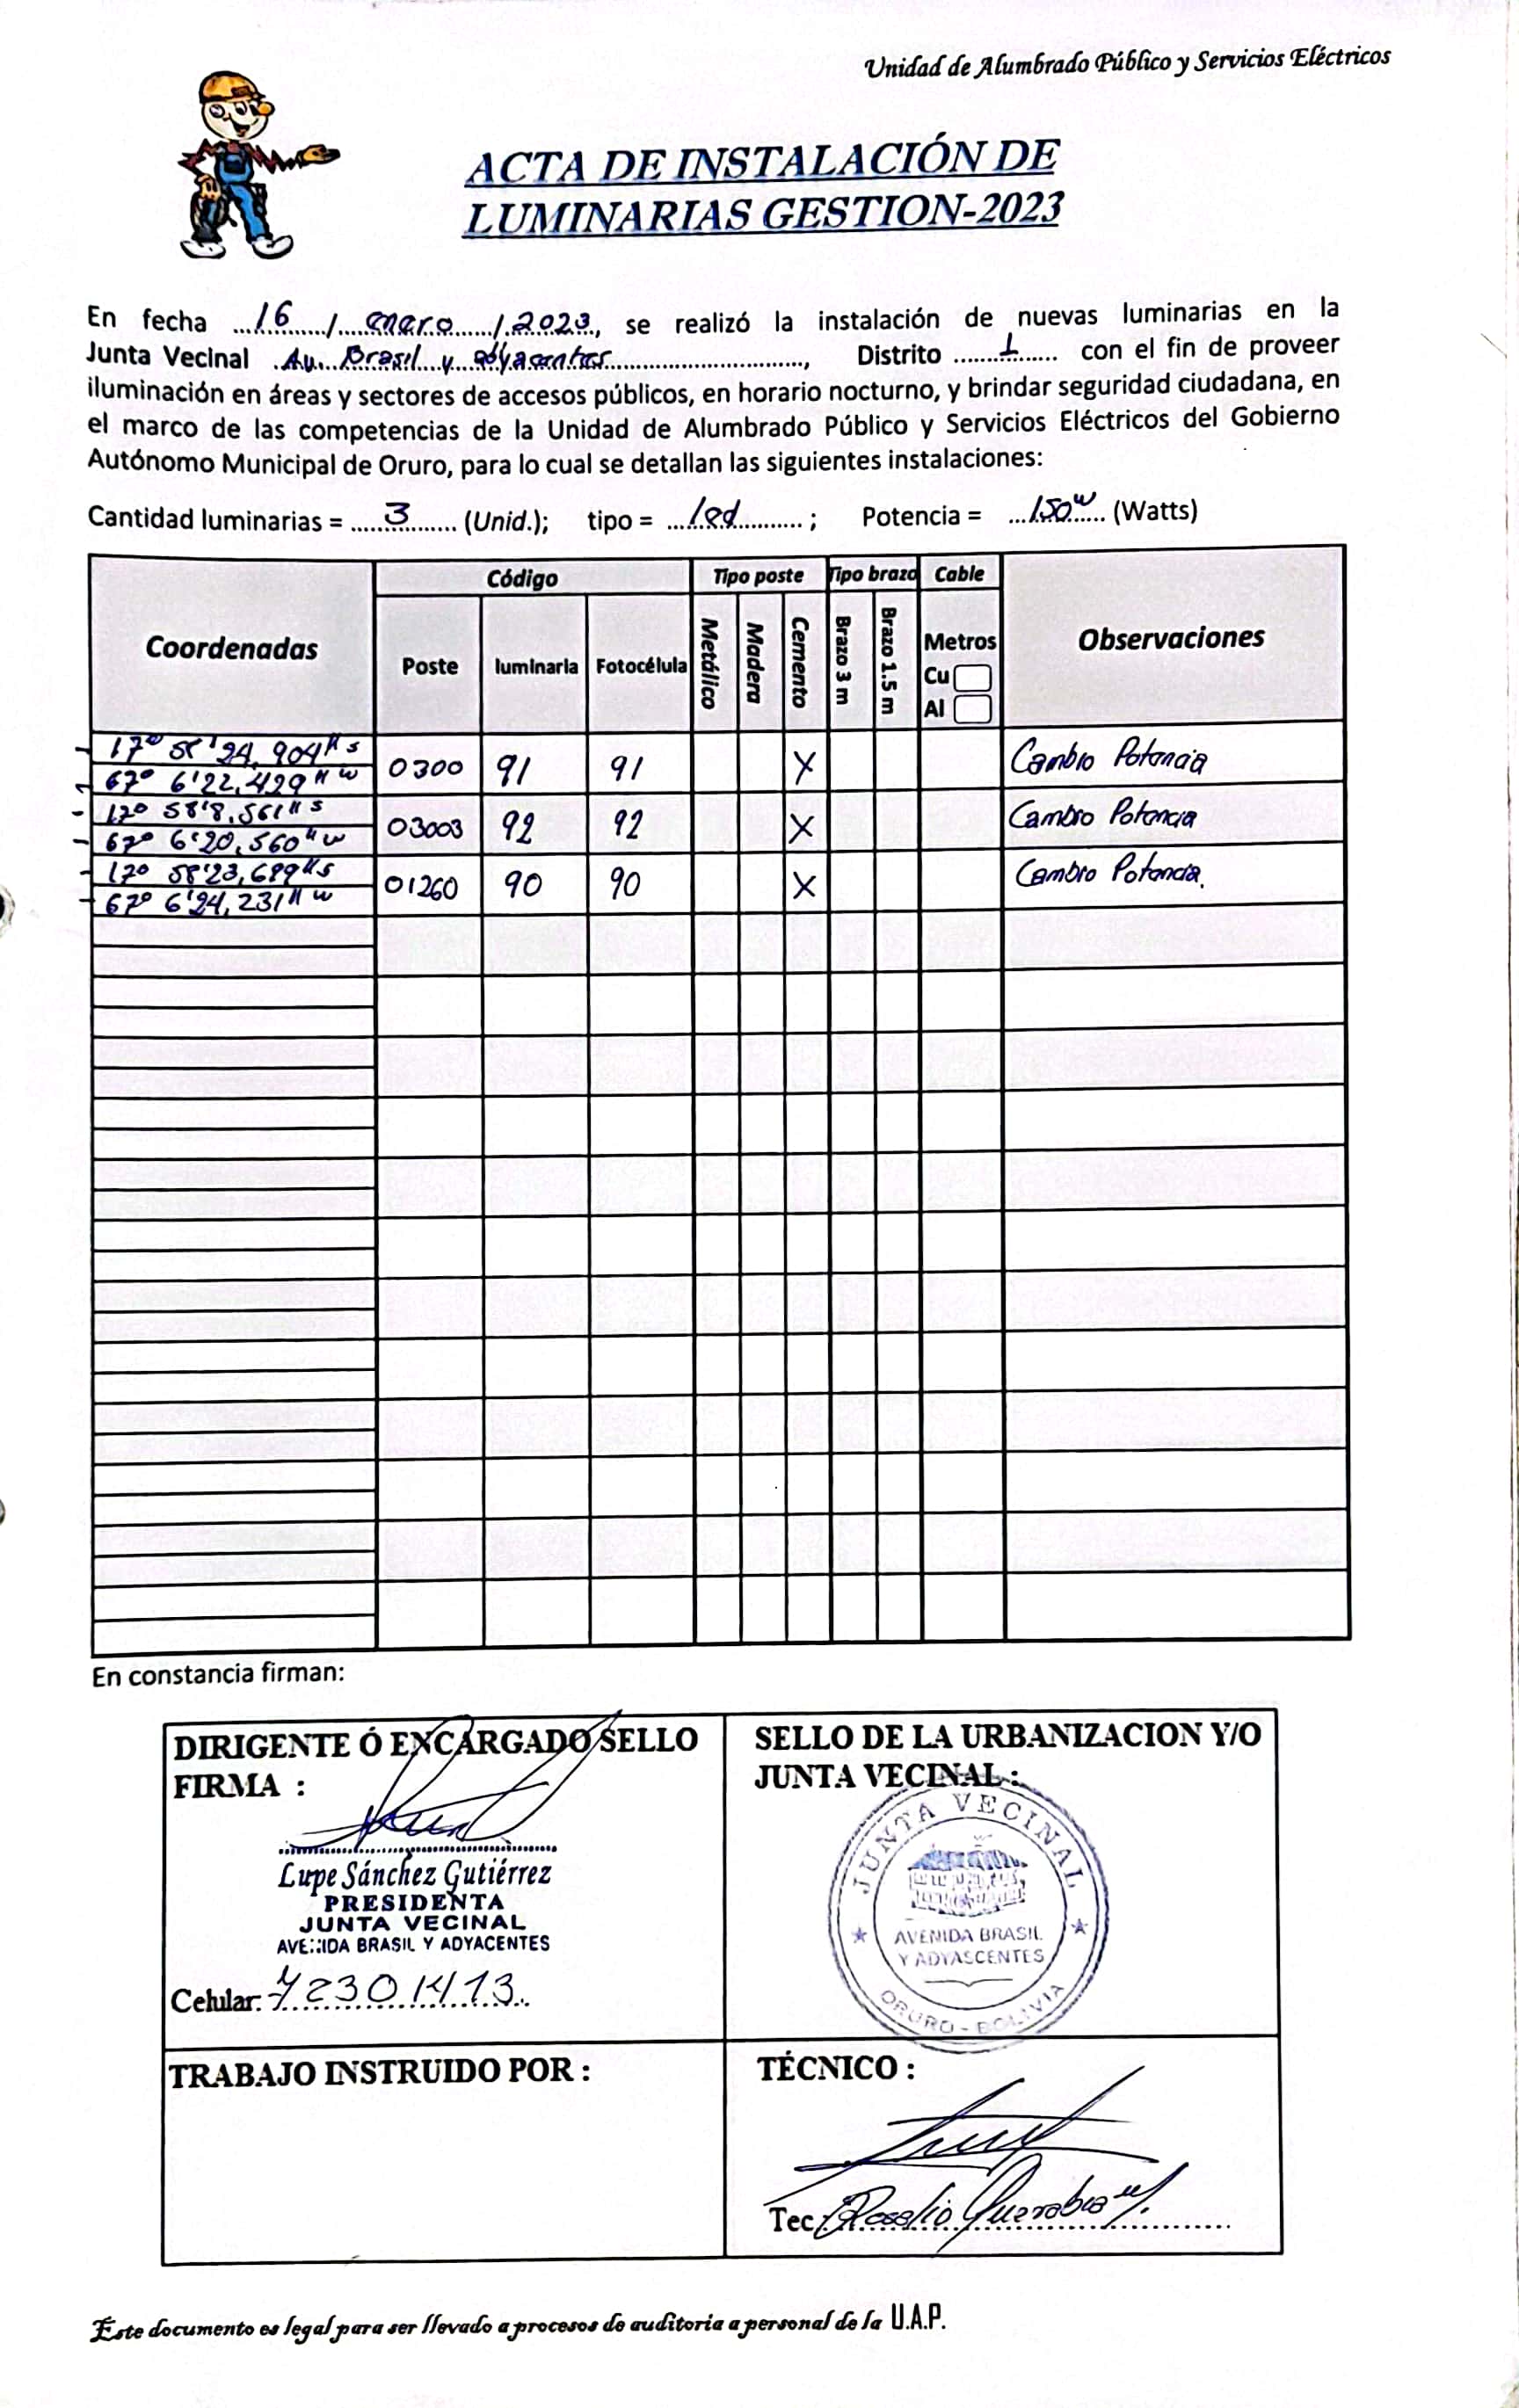 Unidad de Alumbrado Público y Servicios Eléctricos
ACTA DE INSTALACIÓN DE
LUMINARIAS GESTION-2023
En fecha 16 / enero / 2023, se realizó la instalación de nuevas luminarias en la
Junta Vecinal Av. Brasil y adyacentes, Distrito 1 con el fin de proveer
iluminación en áreas y sectores de accesos públicos, en horario nocturno, y brindar seguridad ciudadana, en
el marco de las competencias de la Unidad de Alumbrado Público y Servicios Eléctricos del Gobierno
Autónomo Municipal de Oruro, para lo cual se detallan las siguientes instalaciones:
Cantidad luminarias = 3 (Unid.); tipo = led ; Potencia = 150w (Watts)
Coordenadas Código Tipo poste Tipo brazo Cable Observaciones
Poste luminaria Fotocélula Metálico Madera Cemento Brazo 3 m Brazo 1.5 m Metros
Cu
Al
17° 58'24,904" s
67° 6'22,429" w 0300 91 91 X Cambio Potencia
17° 58'8,561" s
67° 6'20,560" w 03003 92 92 X Cambio Potencia
17° 58'23,699" s
67° 6'24,231" w 01260 90 90 X Cambio Potencia.
En constancia firman:
DIRIGENTE Ó ENCARGADO SELLO
FIRMA :
Lupe Sánchez Gutiérrez
PRESIDENTA
JUNTA VECINAL
AVENIDA BRASIL Y ADYACENTES
Celular:
SELLO DE LA URBANIZACION Y/O
JUNTA VECINAL :
JUNTA VECINAL
AVENIDA BRASIL
Y ADYASCENTES
ORURO - BOLIVIA
TRABAJO INSTRUIDO POR :
TÉCNICO :
Tec. Rosalio
Este documento es legal para ser llevado a procesos de auditoria a personal de la U.A.P.